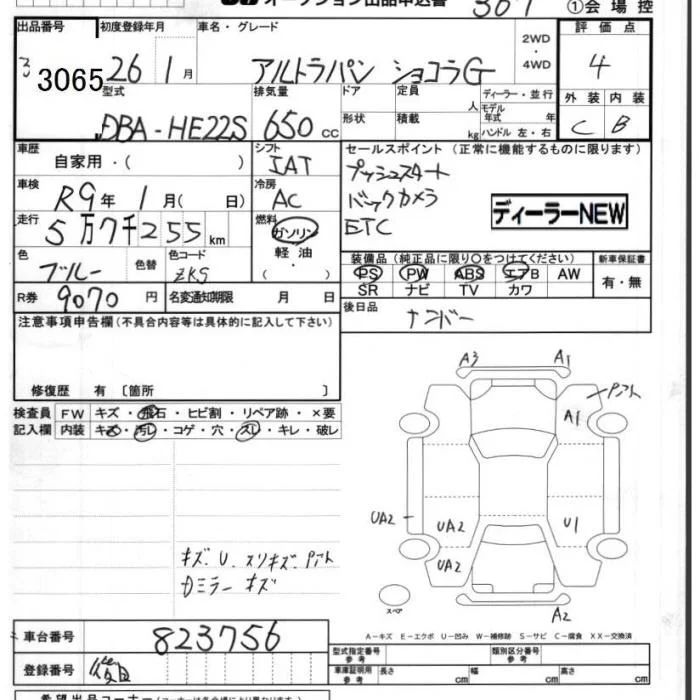 オークション出品申込書 307 ①会場控
出品番号 初度登録年月 車名・グレード 2WD・4WD 評価点
3065 26 1月 アルトラパン ショコラG 4
型式 排気量 ドア 定員 人 ディーラー・並行 外装 内装
DBA-HE22S 650cc 形状 積載 kg モデル年式 年 ハンドル 左・右 C B
車歴 シフト セールスポイント (正常に機能するものに限ります)
自家用・( ) IAT プッシュスタート
車検 R9年 1月( 日) 冷房 AC バックカメラ
走行 5万7千255km 燃料 ガソリン 軽油 ・( ) ETC ディーラーNEW
色 ブルー 色替 色コード ZKS
装備品 (純正品に限り○をつけてください) 新車保証書
PS PW ABS エアB AW 有・無
SR ナビ TV カワ
R券 9070円 名変通知期限 月 日 後日品 ナンバー
注意事項申告欄 (不具合内容等は具体的に記入して下さい)
修復歴 有〔箇所 〕
検査員 FW キズ・飛石・ヒビ割・リペア跡・×要
記入欄 内装 キズ・汚レ・コゲ・穴・スレ・キレ・破レ
A3 A1
A1
UA2 UA2 U1
UA2
キズ、U、スリキズ、
ミラー キズ
スペア A2
A-キズ E-エクボ U-凹み W-補修跡 S-サビ C-腐食 XX-交換済
車台番号 823756
登録番号
型式指定番号 参考 類別区分番号 参考
車庫証明用 参考 長さ cm 幅 cm 高さ cm
希望出品コーナー